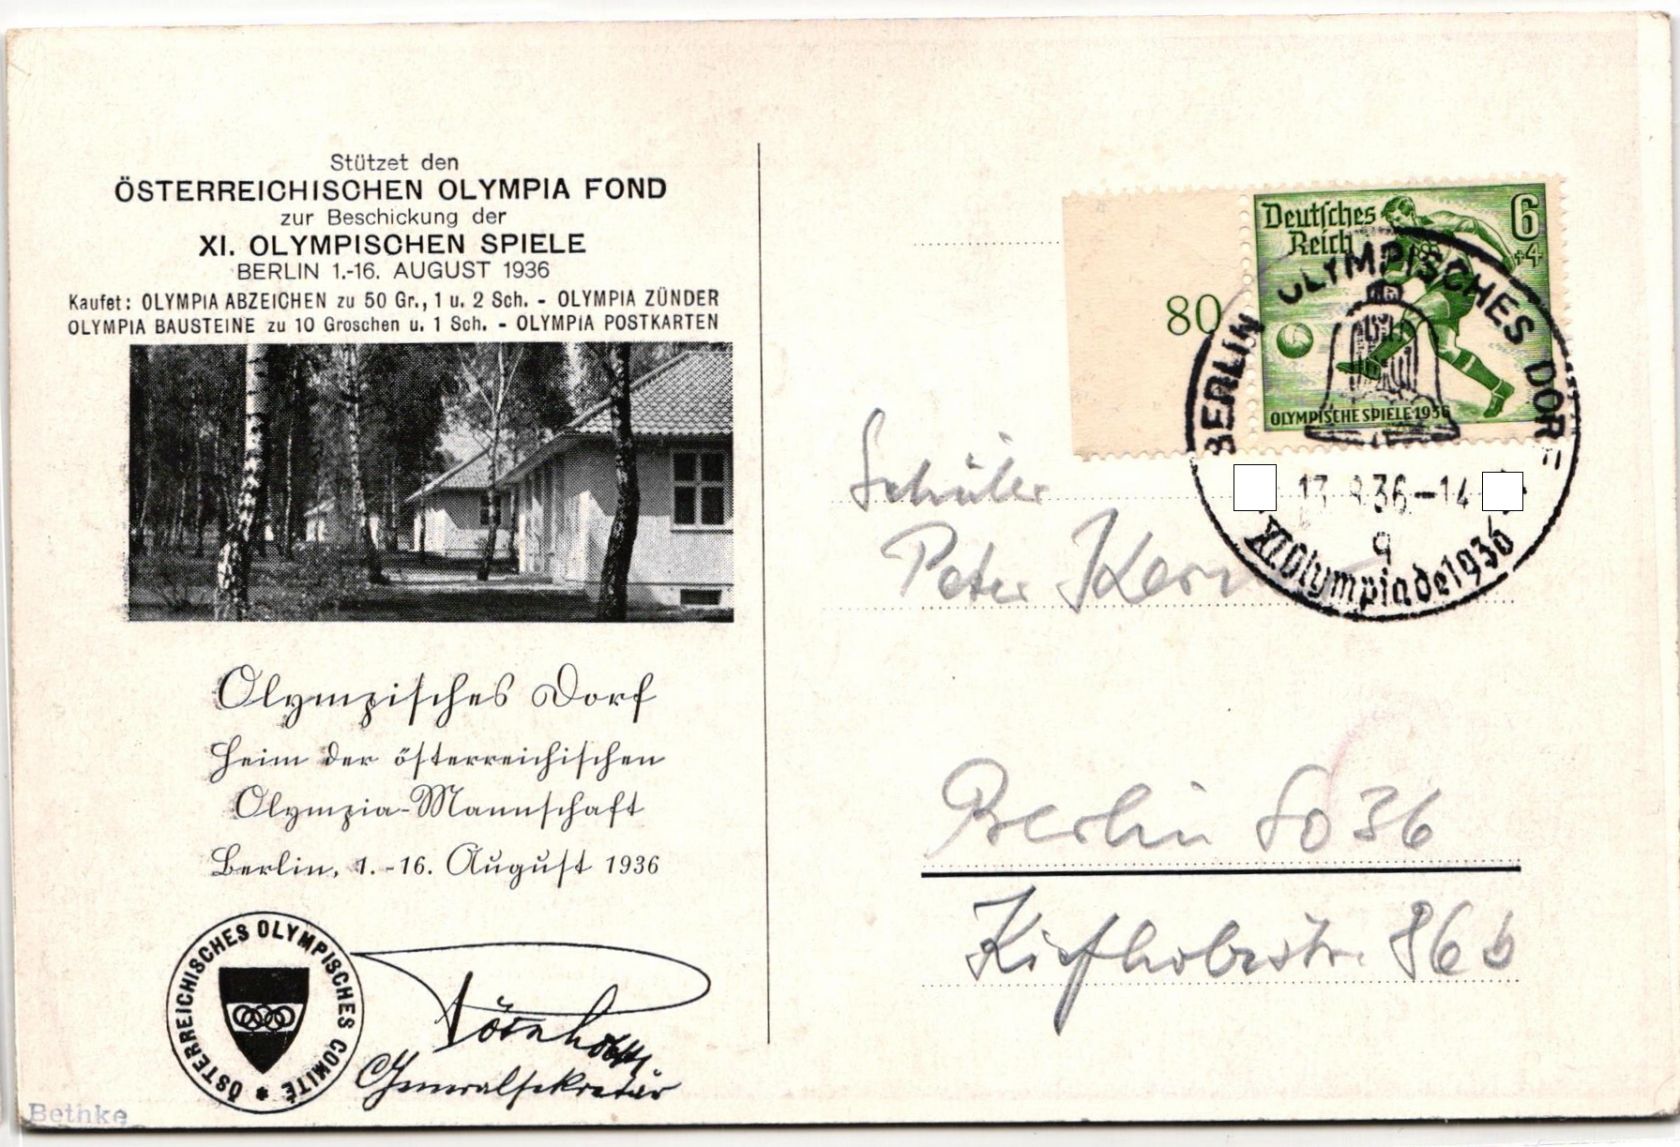 Stützet den
ÖSTERREICHISCHEN OLYMPIA FOND
zur Beschickung der
XI. OLYMPISCHEN SPIELE
BERLIN 1.-16. AUGUST 1936
Kaufet: OLYMPIA ABZEICHEN zu 50 Gr., 1 u. 2 Sch. - OLYMPIA ZÜNDER
OLYMPIA BAUSTEINE zu 10 Groschen u. 1 Sch. - OLYMPIA POSTKARTEN
Olympisches Dorf
Heim der österreichischen
Olympia-Mannschaft
Berlin, 1.-16. August 1936
ÖSTERREICHISCHES OLYMPISCHES COMITÉ *
Generalsekretär
Bethke
80
Deutsches
Reich
6
+4
OLYMPISCHE SPIELE 1936
BERLIN OLYMPISCHES DORF
13.8.36.-14
XI. Olympiade 1936
Schüler
Peter Kern
Berlin SO 36
Kiefholzstr. 86 b